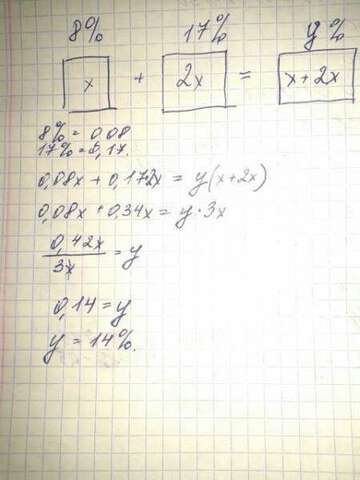 8% 17% y%
x + 2x = x + 2x
8% = 0,08
17% = 0,17.
0,08x + 0,17·2x = y(x+2x)
0,08x + 0,34x = y·3x
0,42x/3x = y
0,14 = y
y = 14%.